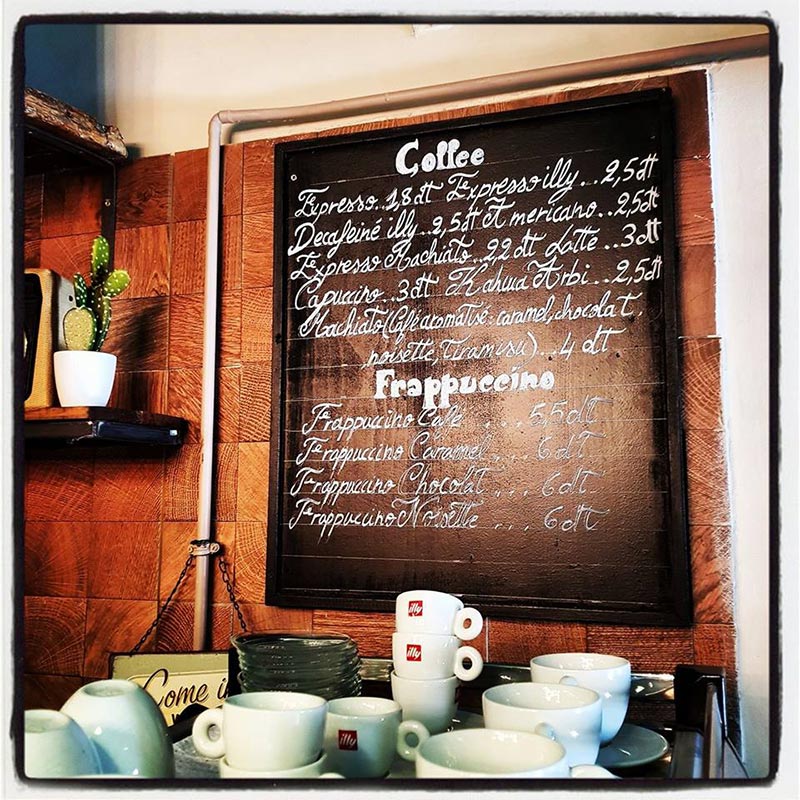 Coffee
Expresso..1,8dt Expresso illy...2,5dt
Decafeiné illy..2,5dt Americano..2,5dt
Expresso Machiato...2,2 dt Latte...3dt
Capuccino...3dt Kahwa Arbi...2,5dt
Machiato (Café aromatisé: caramel, chocolat,
noisette, Tiramisu)...4 dt
Frappuccino
Frappuccino Café ... 5,5dt
Frappuccino Caramel ... 6dt
Frappuccino Chocolat ... 6dt
Frappuccino Noisette ... 6dt
illy
illy
Come in
illy